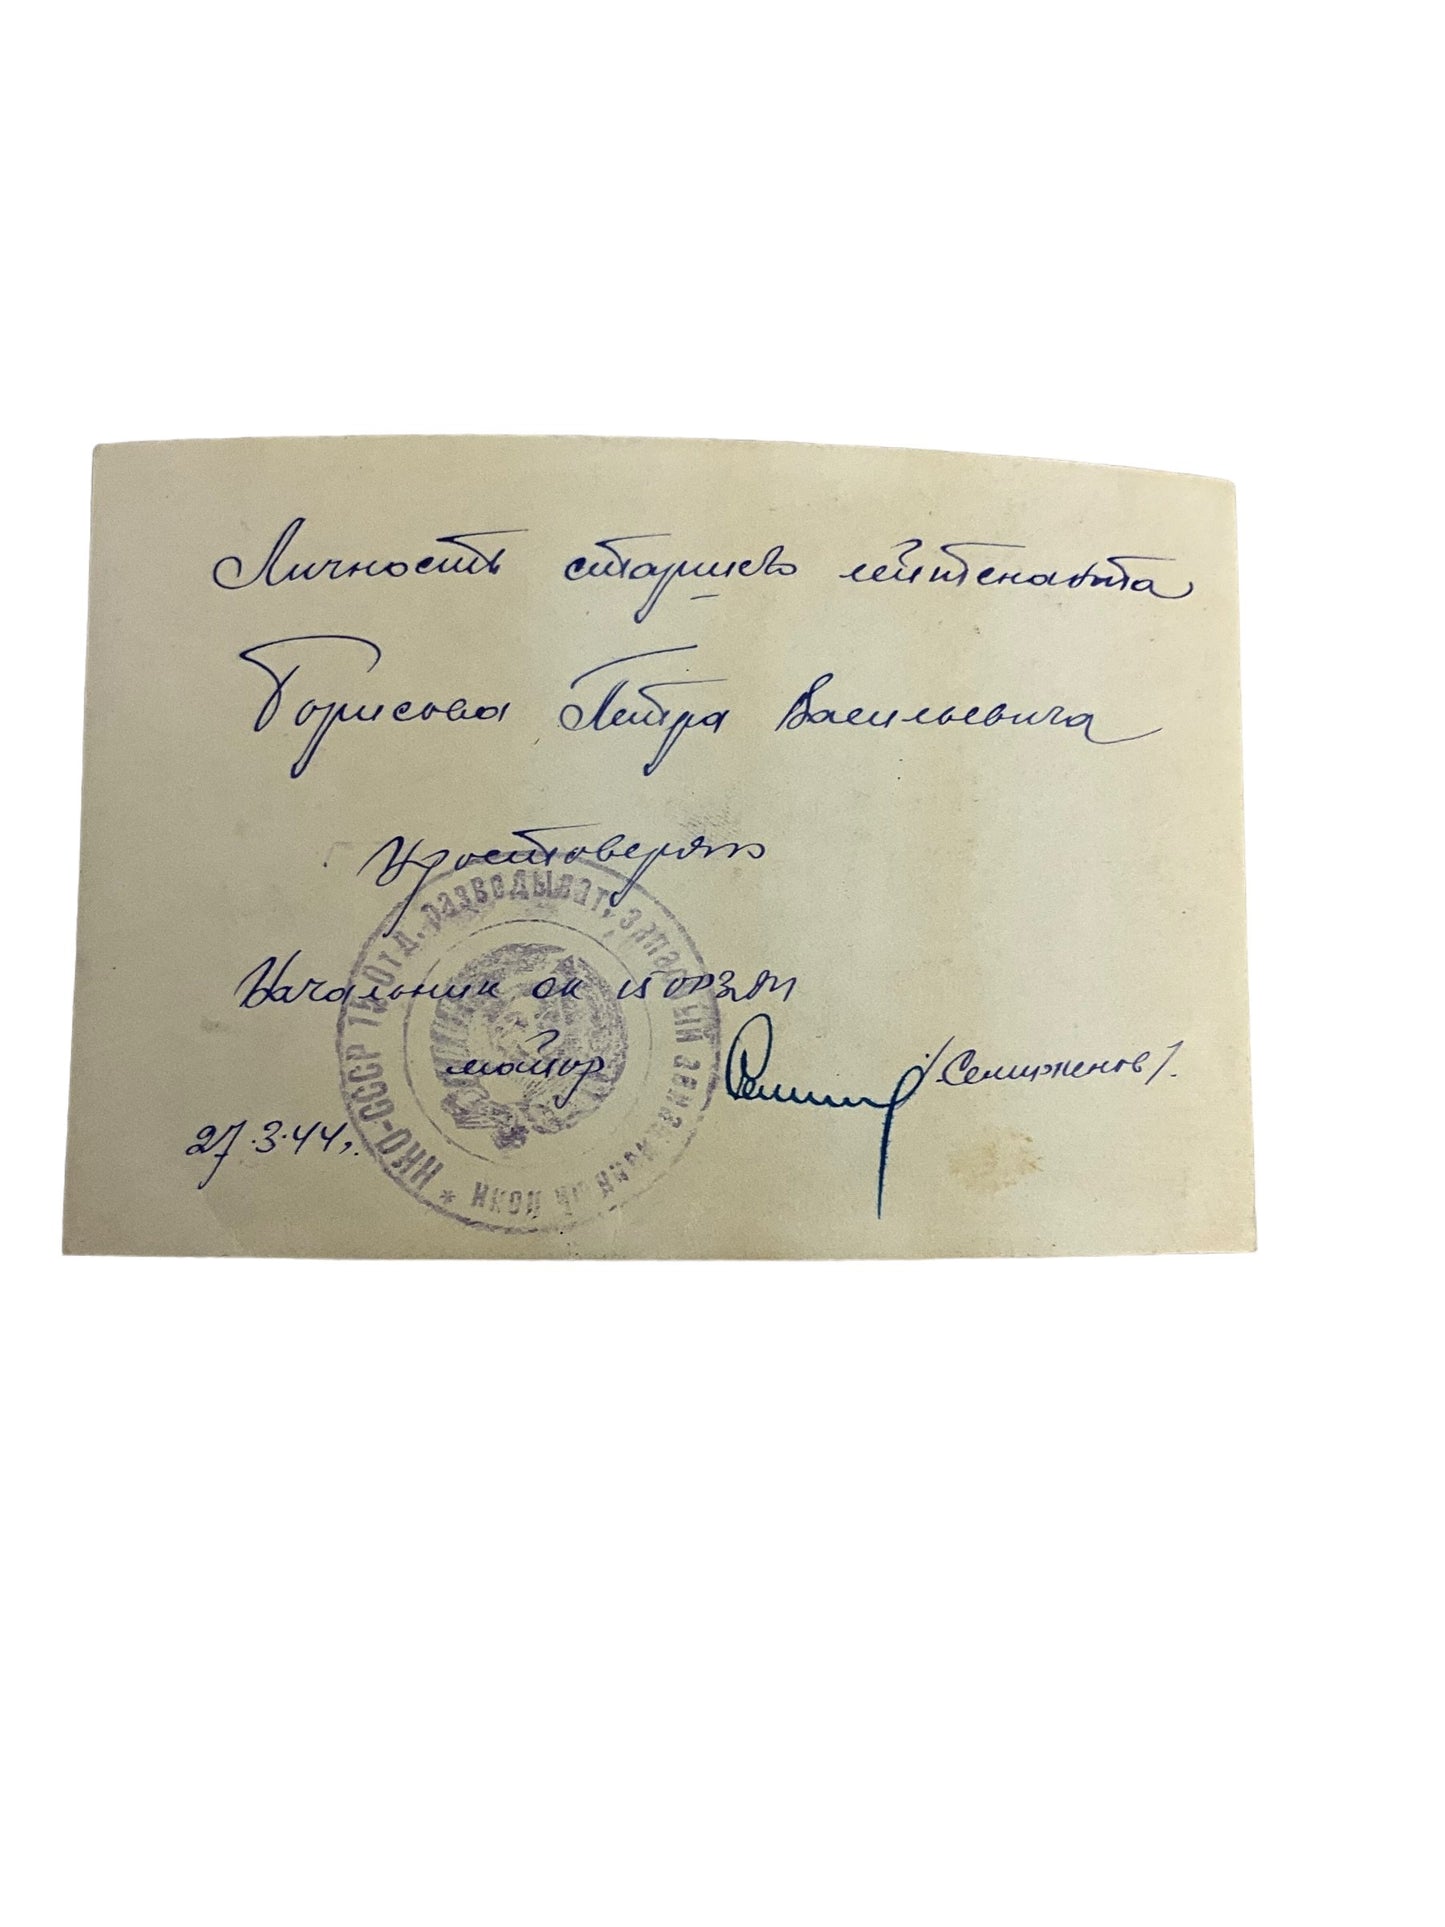 Личность старшего лейтенанта
Борисова Петра Васильевича
Удостоверяю
Начальник ОК 15 ОРЗДН
майор /Семирженов/.
27.3.44г.
НКО-СССР 15 Отд. разведыват. запасный зенитный дивизион *